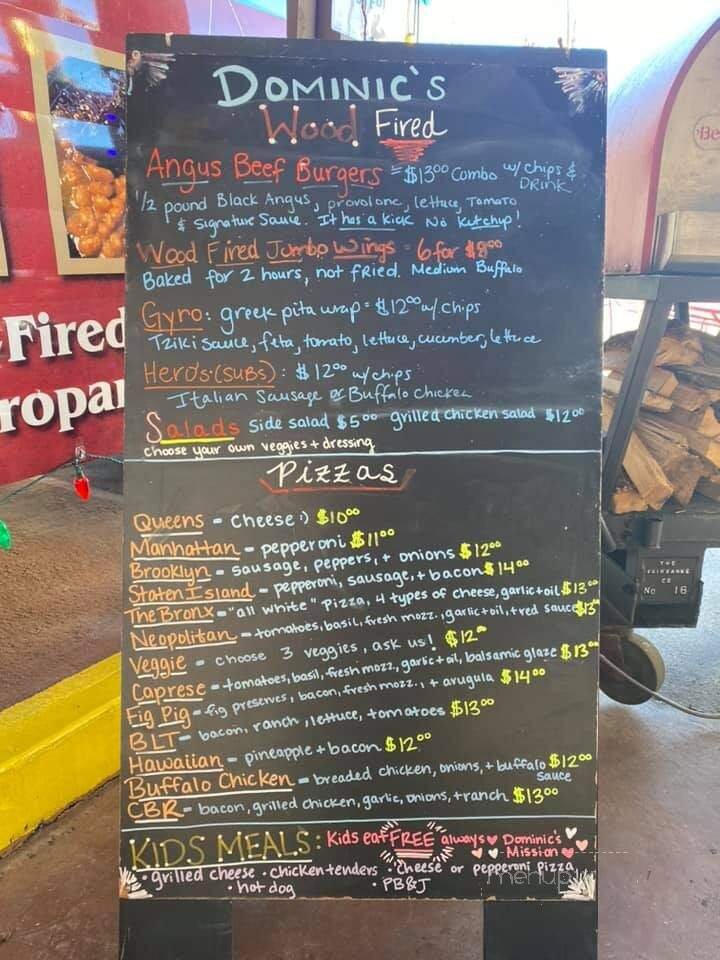 DOMINIC'S
Wood Fired
Angus Beef Burgers = $13⁰⁰ Combo w/ chips & DRINK
1/2 pound Black Angus, provolone, lettuce, Tomato
& Signature Sauce. It has a kick No Ketchup!
Wood Fired Jumbo Wings - 6 for $8⁰⁰
Baked for 2 hours, not fried. Medium Buffalo
Gyro: greek pita wrap = $12⁰⁰ w/ chips
Tziki sauce, feta, tomato, lettuce, cucumber, lettuce
Hero's (SUBS): $12⁰⁰ w/ chips
Italian Sausage or Buffalo Chicken
Salads side salad $5⁰⁰ grilled chicken salad $12⁰⁰
choose your own veggies + dressing
Pizzas
Queens - cheese :) $10⁰⁰
Manhattan - pepperoni $11⁰⁰
Brooklyn - sausage, peppers, + onions $12⁰⁰
Staten Island - pepperoni, sausage, + bacon $14⁰⁰
The Bronx - "all white" pizza, 4 types of cheese, garlic + oil $13⁰⁰
Neopolitan - tomatoes, basil, fresh mozz., garlic + oil, + red sauce $13
Veggie - choose 3 veggies, ask us! $12⁰⁰
Caprese - tomatoes, basil, fresh mozz, garlic + oil, balsamic glaze $13⁰⁰
Fig Pig - fig preserves, bacon, fresh mozz., + arugula $14⁰⁰
BLT - bacon, ranch, lettuce, tomatoes $13⁰⁰
Hawaiian - pineapple + bacon $12⁰⁰
Buffalo Chicken - breaded chicken, onions, + buffalo sauce $12⁰⁰
CBR - bacon, grilled chicken, garlic, onions, + ranch $13⁰⁰
KIDS MEALS: Kids eat FREE always Dominic's Mission
• grilled cheese • chicken tenders • cheese or pepperoni pizza
• hot dog • PB&J
menupix
-Fired
ropan
Be
THE
FAIRBANKS
CO
No 16